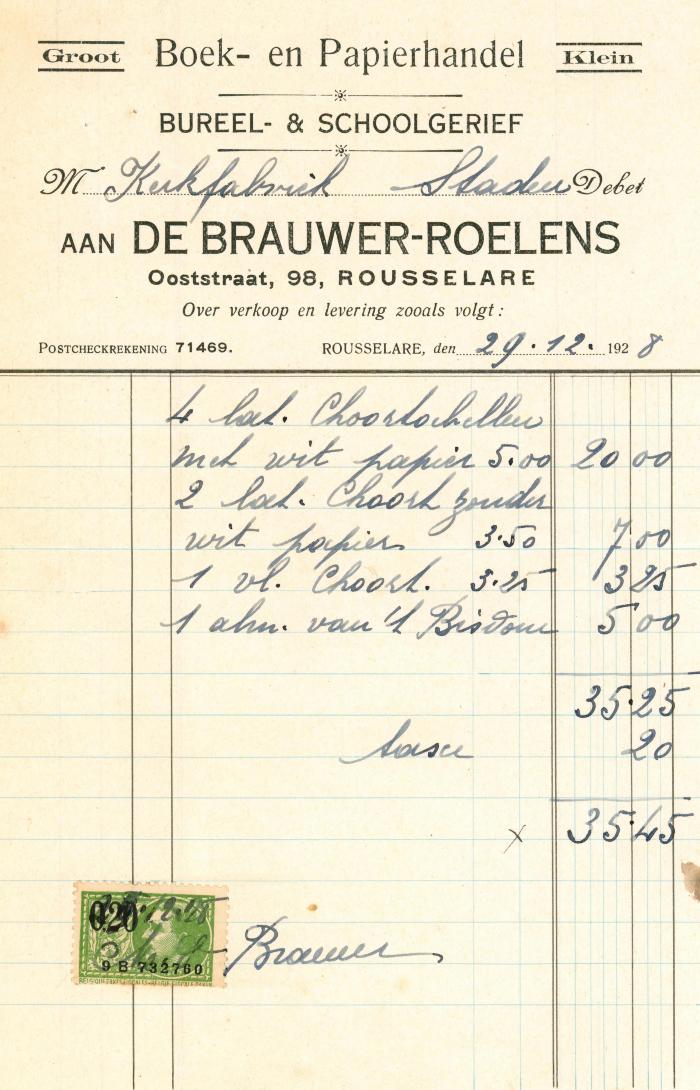 Groot Boek- en Papierhandel Klein
BUREEL- & SCHOOLGERIEF
M Kerkfabriek Staden Debet
AAN DE BRAUWER-ROELENS
Ooststraat, 98, ROUSSELARE
Over verkoop en levering zooals volgt :
POSTCHECKREKENING 71469. ROUSSELARE, den 29.12. 1928
4 lat.
met wit papier 5.00 20 00
2 lat. Choort zonder
wit papier 3.50 7 00
1 vl. Choort. 3.25 3 25
1 alm. van 't Bisdom 5 00
35.25
taxe 20
35.45
0.20
9 B 732760
Brauwer